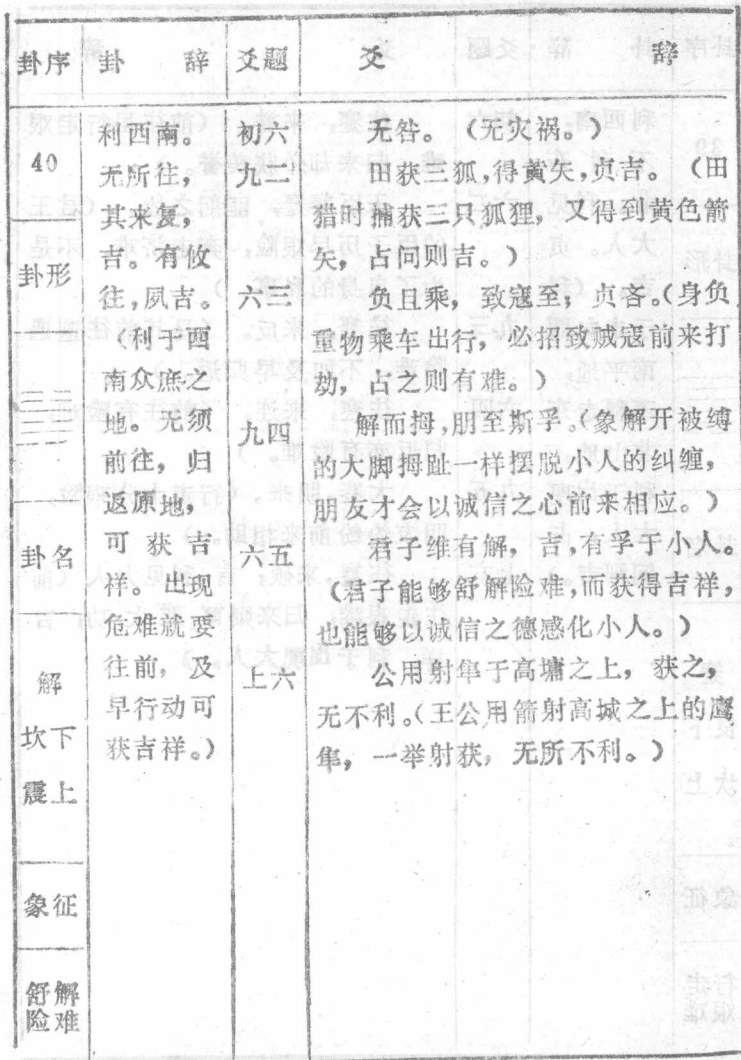 卦序 卦 辞 爻题 爻 辞
40
卦形
卦名
解
坎下
震上
象征
舒解
险难
利西南。
无所往，
其来复，
吉。有攸
往，夙吉。
（利于西
南众庶之
地。无须
前往，归
返原地，
可获吉
祥。出现
危难就要
往前，及
早行动可
获吉祥。）
初六 无咎。（无灾祸。）
九二 田获三狐，得黄矢，贞吉。（田
猎时捕获三只狐狸，又得到黄色箭
矢，占问则吉。）
六三 负且乘，致寇至；贞吝。（身负
重物乘车出行，必招致贼寇前来打
劫，占之则有难。）
九四 解而拇，朋至斯孚。（象解开被缚
的大脚拇趾一样摆脱小人的纠缠，
朋友才会以诚信之心前来相应。）
六五 君子维有解，吉，有孚于小人。
（君子能够舒解险难，而获得吉祥，
也能够以诚信之德感化小人。）
上六 公用射隼于高墉之上，获之，
无不利。（王公用箭射高城之上的鹰
隼，一举射获，无所不利。）